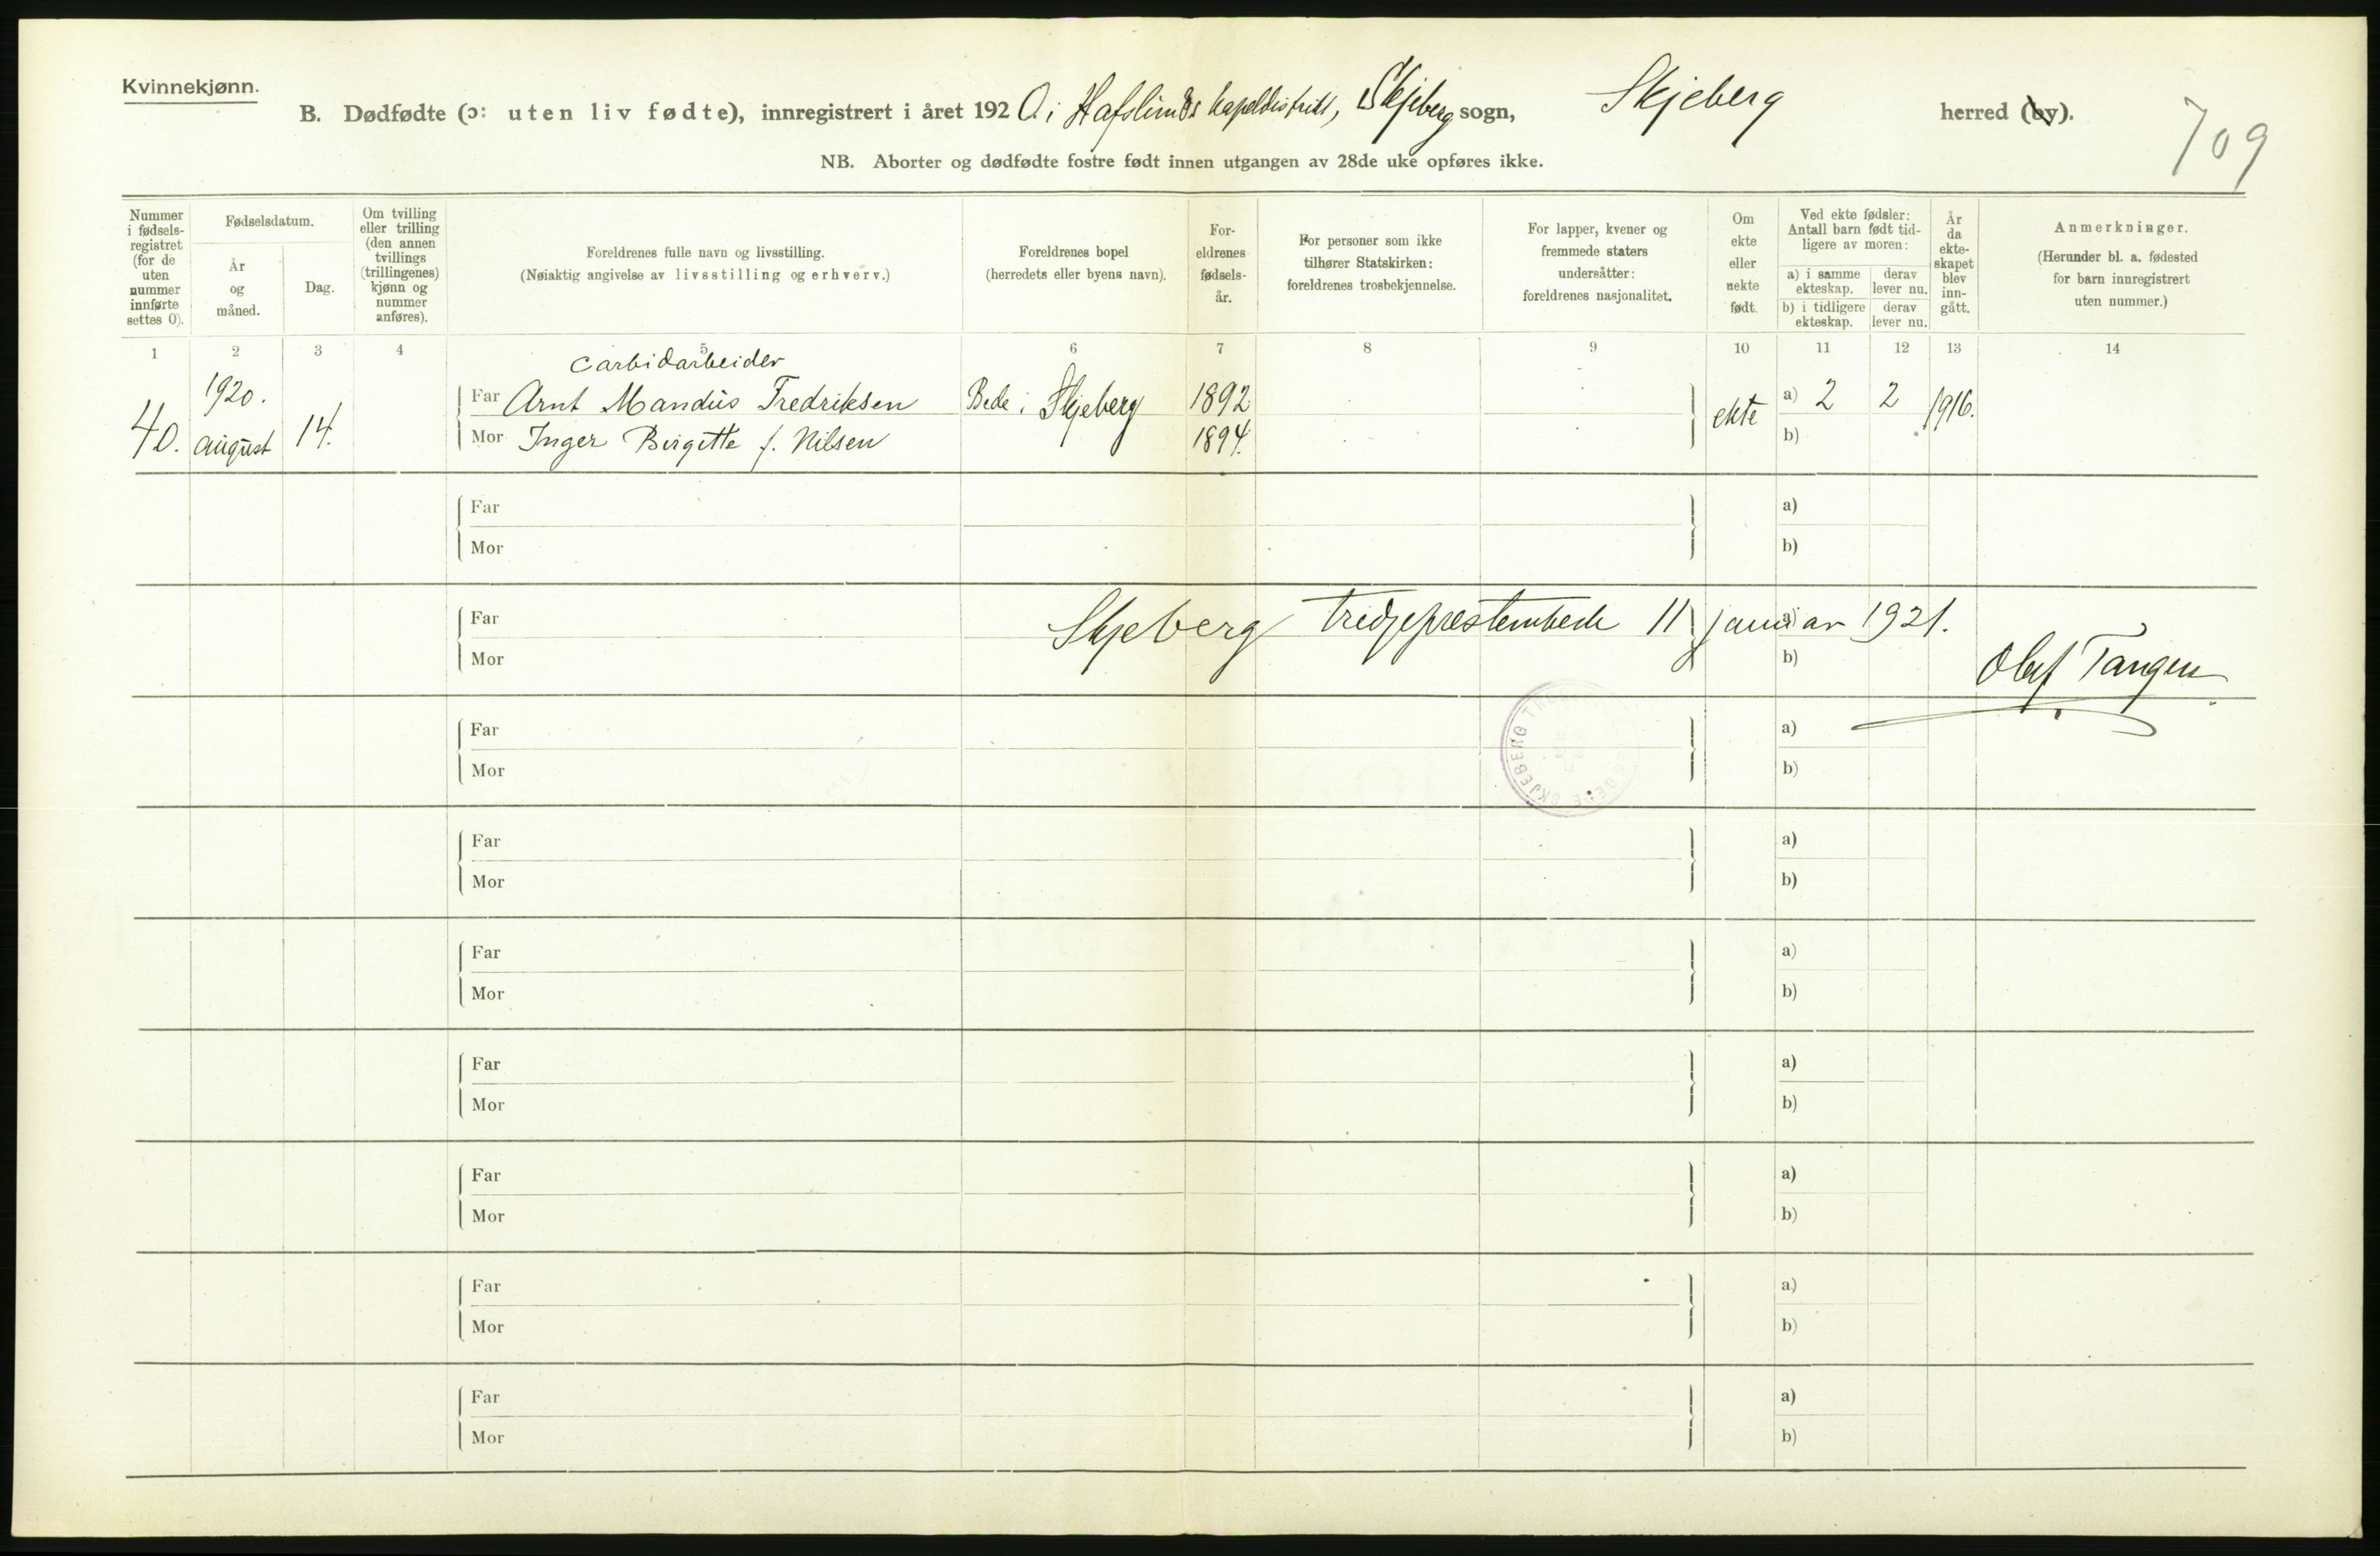 Kvinnekjønn.
B. Dødfødte (ɔ: uten liv fødte), innregistrert i året 1920 i Hafslunds kapeldistrikt, Skjeberg sogn, Skjeberg herred (by).
709
NB. Aborter og dødfødte fostre født innen utgangen av 28de uke opføres ikke.
Nummer i fødsels-registret (for de uten nummer innførte settes 0).
Fødselsdatum.
År og måned.
Dag.
Om tvilling eller trilling (den annen tvillings (trillingenes) kjønn og nummer anføres).
Foreldrenes fulle navn og livsstilling.
(Nøiaktig angivelse av livsstilling og erhverv.)
Foreldrenes bopel
(herredets eller byens navn).
For-eldrenes fødsels-år.
For personer som ikke tilhører Statskirken: foreldrenes trosbekjennelse.
For lapper, kvener og fremmede staters undersåtter: foreldrenes nasjonalitet.
Om ekte eller uekte født.
Ved ekte fødsler: Antall barn født tid-ligere av moren:
a) i samme ekteskap.
derav lever nu.
b) i tidligere ekteskap.
derav lever nu.
År da ekte-skapet blev inn-gått.
Anmerkninger.
(Herunder bl. a. fødested for barn innregistrert uten nummer.)
1 2 3 4 5 6 7 8 9 10 11 12 13 14
carbidarbeider
40. 1920. august 14.
Far Arnt Mandus Fredriksen Bede i Skjeberg 1892 ekte a) 2 2 1916.
Mor Inger Birgitte f. Nilsen 1894. b)
Far a)
Mor b)
Far Skjeberg 11 januar 1921. a)
Mor b)
Olaf Tangen
Far a)
Mor b)
SKJEBERG
Far a)
Mor b)
Far a)
Mor b)
Far a)
Mor b)
Far a)
Mor b)
Far a)
Mor b)
Far a)
Mor b)